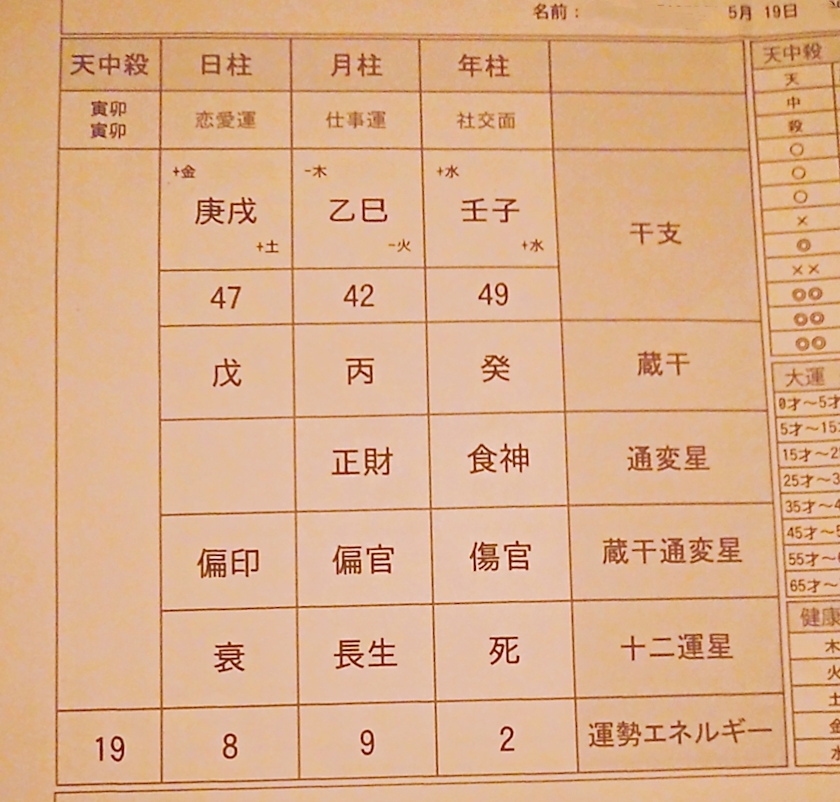 名前：
5月 19日
天中殺 日柱 月柱 年柱
寅卯
寅卯
恋愛運 仕事運 社交面
+金 -木 +水
庚戌 乙巳 壬子 干支
+土 -火 +水
47 42 49
戊 丙 癸 蔵干
正財 食神 通変星
偏印 偏官 傷官 蔵干通変星
衰 長生 死 十二運星
19 8 9 2 運勢エネルギー
天中殺
天
中
殺
○
○
○
×
◎
××
◎◎
◎◎
◎◎
大運
0才～5才
5才～15
15才～2
25才～3
35才～4
45才～5
55才～
65才～
健康
木
火
土
金
水